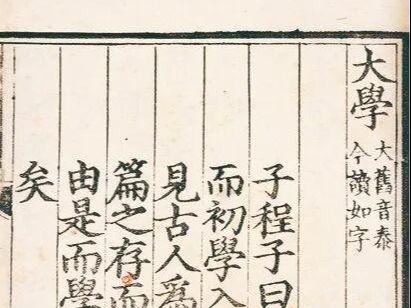 大學
大舊音泰
今讀如字
子程子曰
而初學入
見古人爲
篇之存而
由是而學
矣